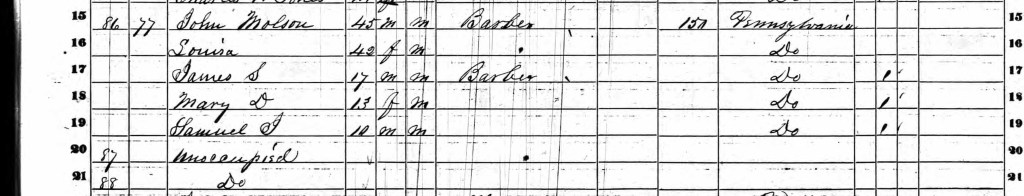 15 86 77 John Molson 45 m m Barber 150 Pennsylvania 15
16 Louisa 42 f m Do 16
17 James S 17 m m Barber Do 1 17
18 Mary D 13 f m Do 1 18
19 Samuel J 10 m m Do 1 19
20 87 Unoccupied 20
21 88 Do 21